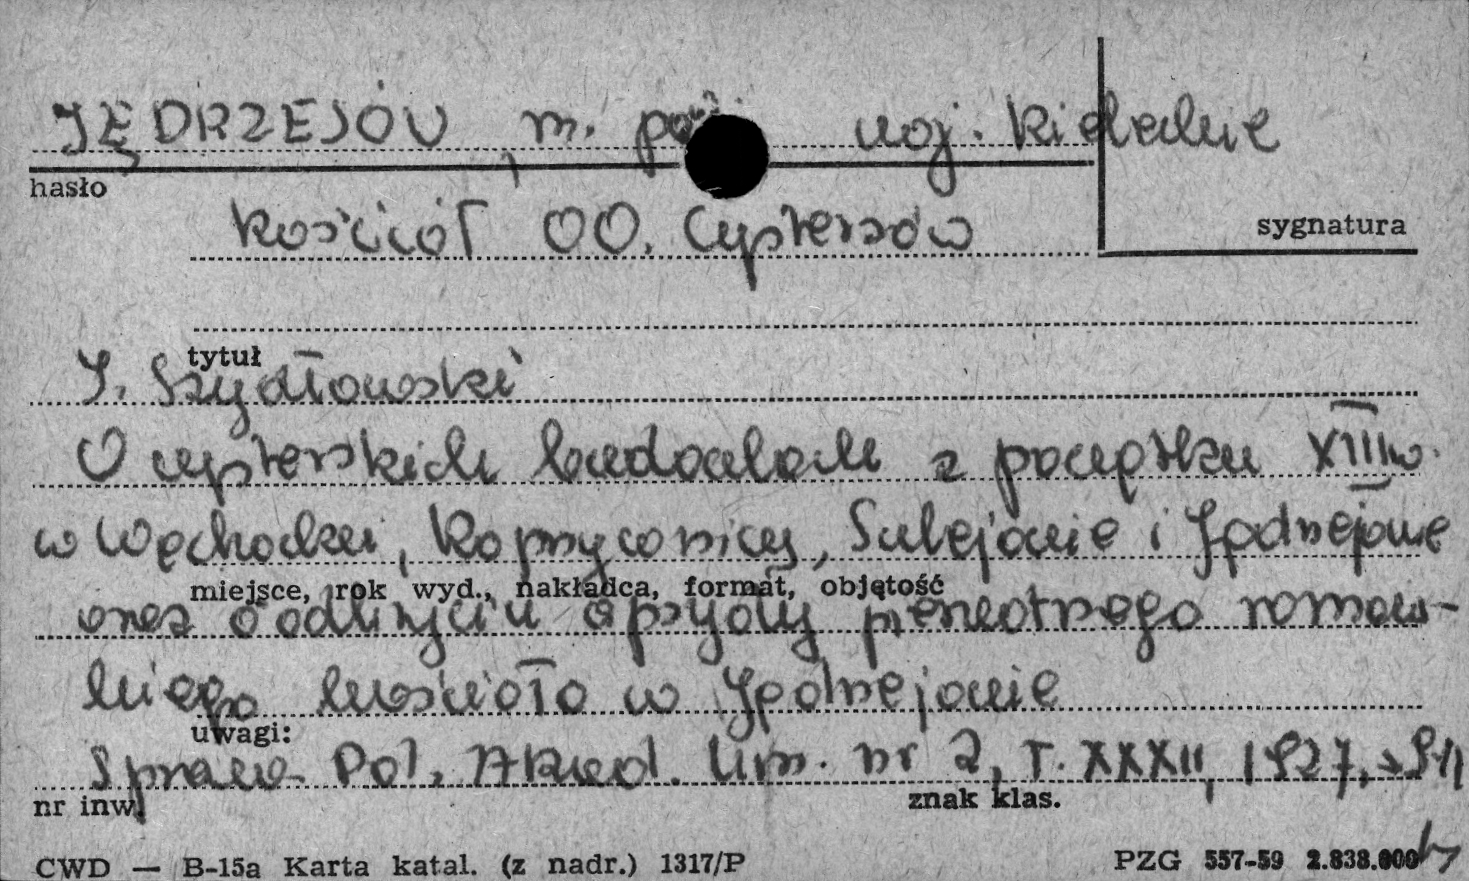 JĘDRZEJÓW, m. pow. woj. kieleckie
hasło
kościół OO. Cystersów
sygnatura
tytuł
T. Szydłowski
O cysterskich budowlach z początku XIII w.
w Wąchocku, Koprzywnicy, Sulejowie i Jędrzejowie
miejsce, rok wyd., nakładca, format, objętość
oraz o odkryciu apsydy pierwotnego romań-
skiego kościoła w Jędrzejowie
uwagi:
Spraw. Pol. Akad. Um. nr 2, T. XXXII, 1927,
nr inw.
znak klas.
CWD — B-15a Karta katal. (z nadr.) 1317/P
PZG 557-59 2.838.000